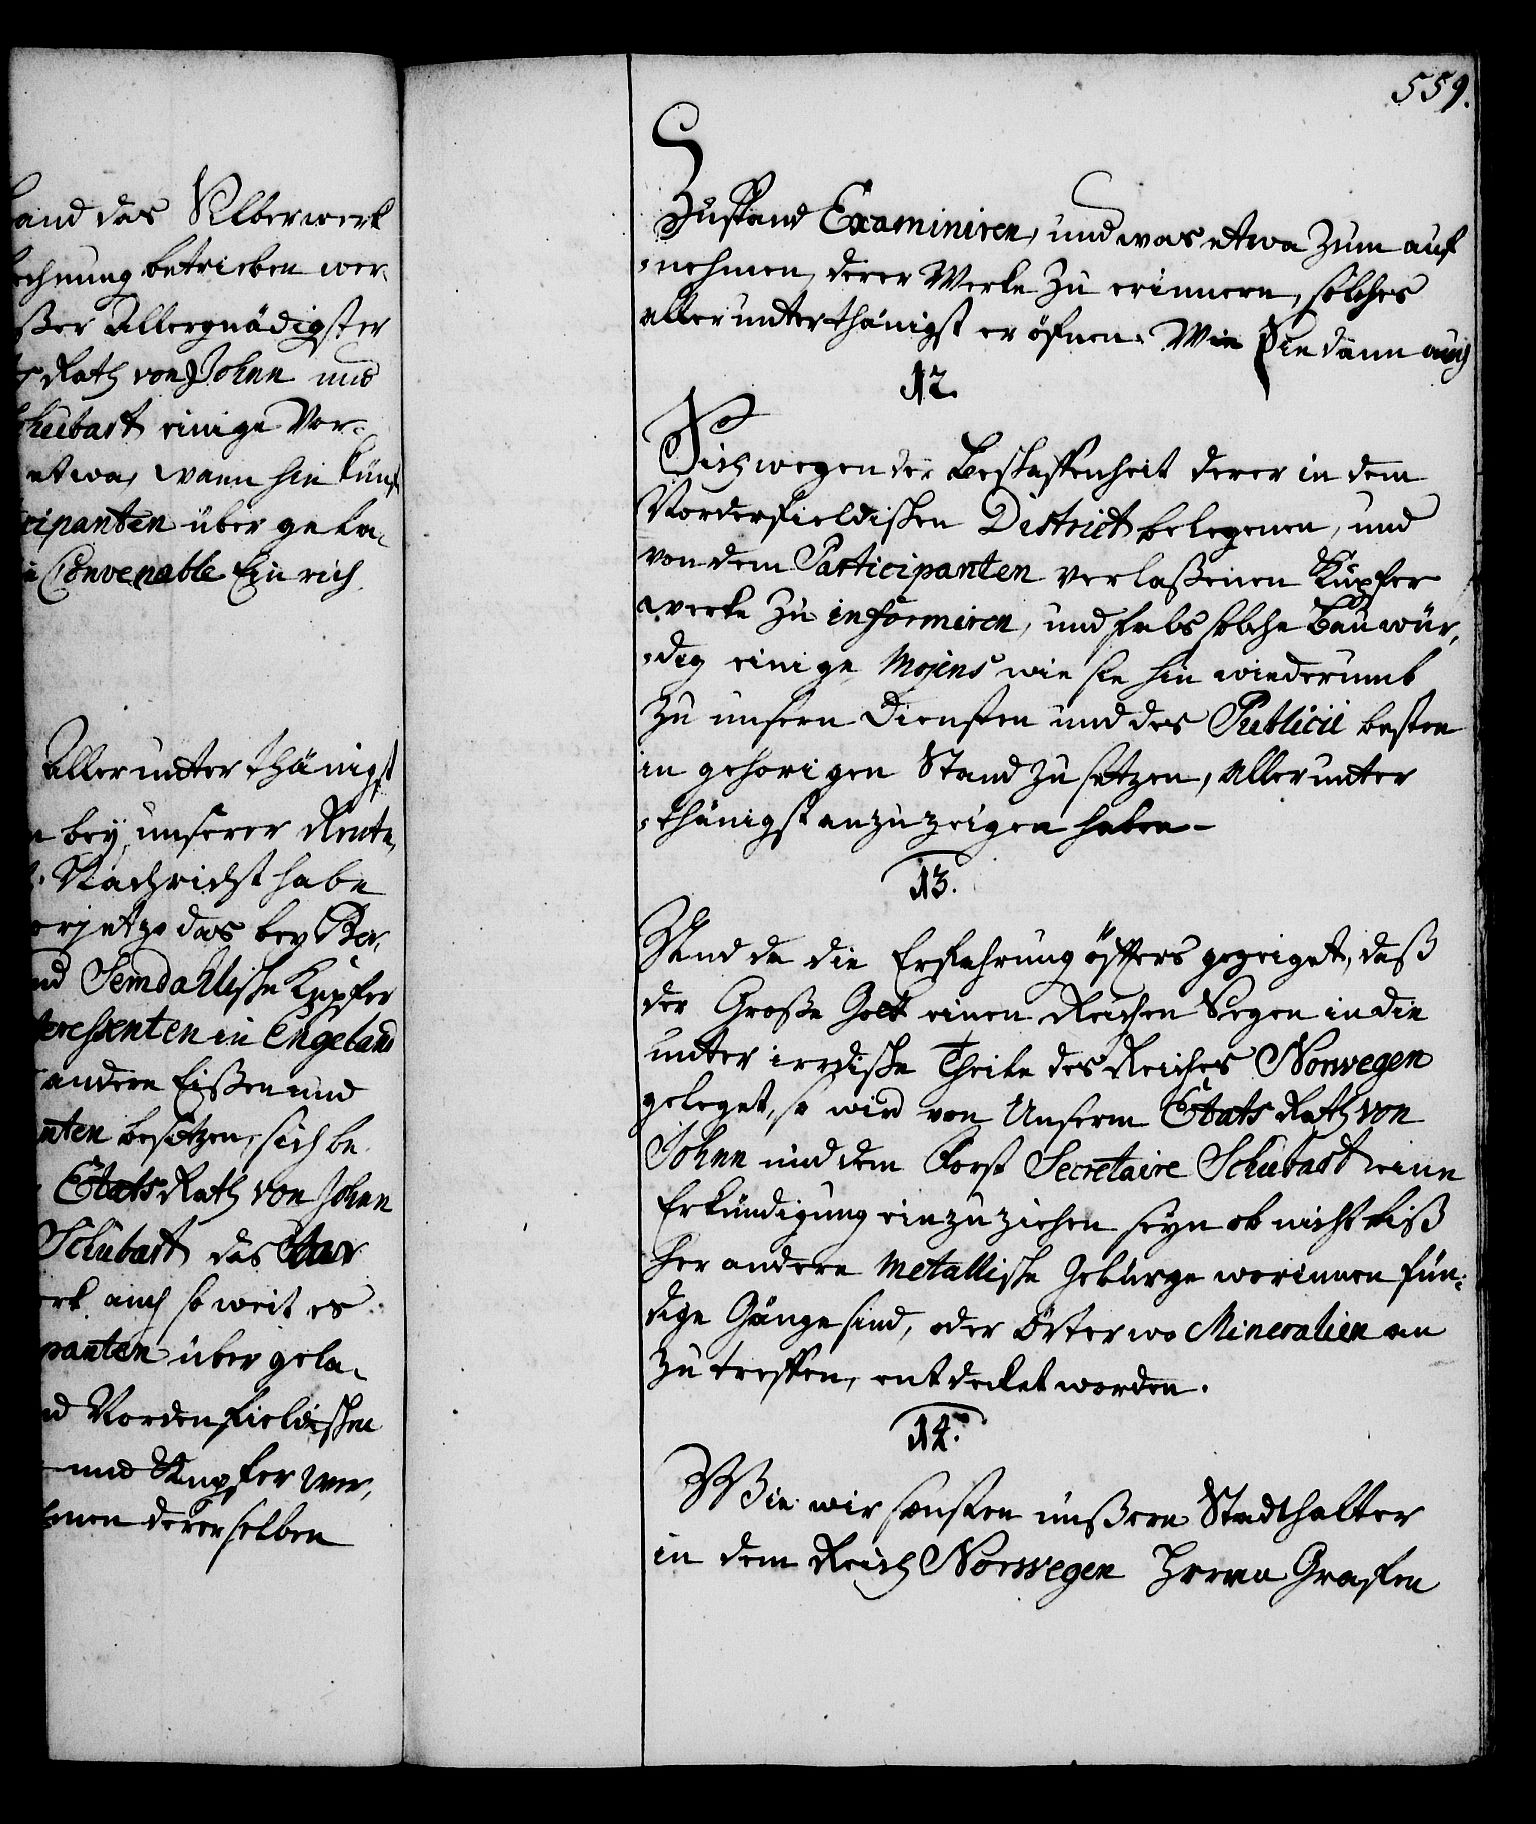 and das Silberwerk
echnung betrieben wer¬
ßer Allergnädigster
Rath von Johnn und
chubart einige Vor¬
etwa, wann hie künf
cipanten über gela¬
Convenable Ein rich
Aller unter thänigst
bey unserer Rente
Nachricht habe
jetzo das bey Ber¬
nd Semdahlische Kupfer
teressenten in Engeland
andere Eißen und
nten besetzen, sich be
Etats Rath von Johnn
Schubart das
erk auch so weit es
panten über gela¬
nd Nordenfieldischen
und Kupfer wer¬
hmen dererselben
559.
Zustand Examiniren, und was etwa zum auf
=nehmen, derer Werke zu erinnern, solches
allerunterthänigst er öfnen. Wie Sie dann auch
12.
Sich wegen der Beschaffenheit derer in dem
Nordenfieldischen District belegenen, und
von dem Participanten verlaßenen Kupfer
werke zu informiren, und falls solche Bauwür¬
=dig einige Mojens wie sie hin wiederumb
zu unsern Diensten und des Publicii besten
in gehorigen Stand zu setzen, Allerunter
=thänigst anzuzeigen haben
13.
Und da die Erfahrung öffters gezeiget, daß
der Große Gott einen Reichen Segen in die
unter irrdische Theile des Reiches Norwegen
geleget, so wird von Unserm Etats Rath von
Johnn und dem Forst Secretaire Schubart eine
Erkündigung einzuziehen seyn ob nicht biß
her andere Metallische Gebürge worinnen fün¬
dige Gänge sind, oder Örter wo Mineralien an
zu treffen, entdecket worden.
14.
Wie wir sonsten unßern Stadthalter
in dem Reich Norwegen Herrn Grafen